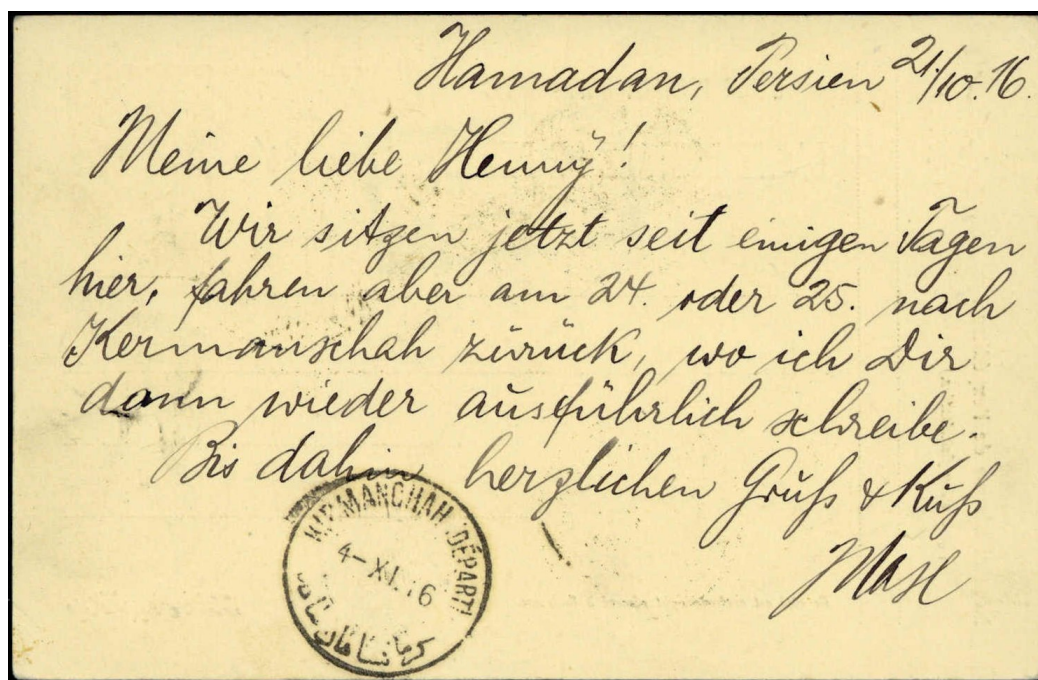 Hamadan, Persien 21/10.16.
Meine liebe Henny!
Wir sitzen jetzt seit einigen Tagen
hier, fahren aber am 24. oder 25. nach
Kermanschah zurück, wo ich Dir
dann wieder ausführlich schreibe.
Bis dahin herzlichen Gruß & Kuß
Max
KIRMANCHAH DÉPART
4-XI.16
کرمانشاهان